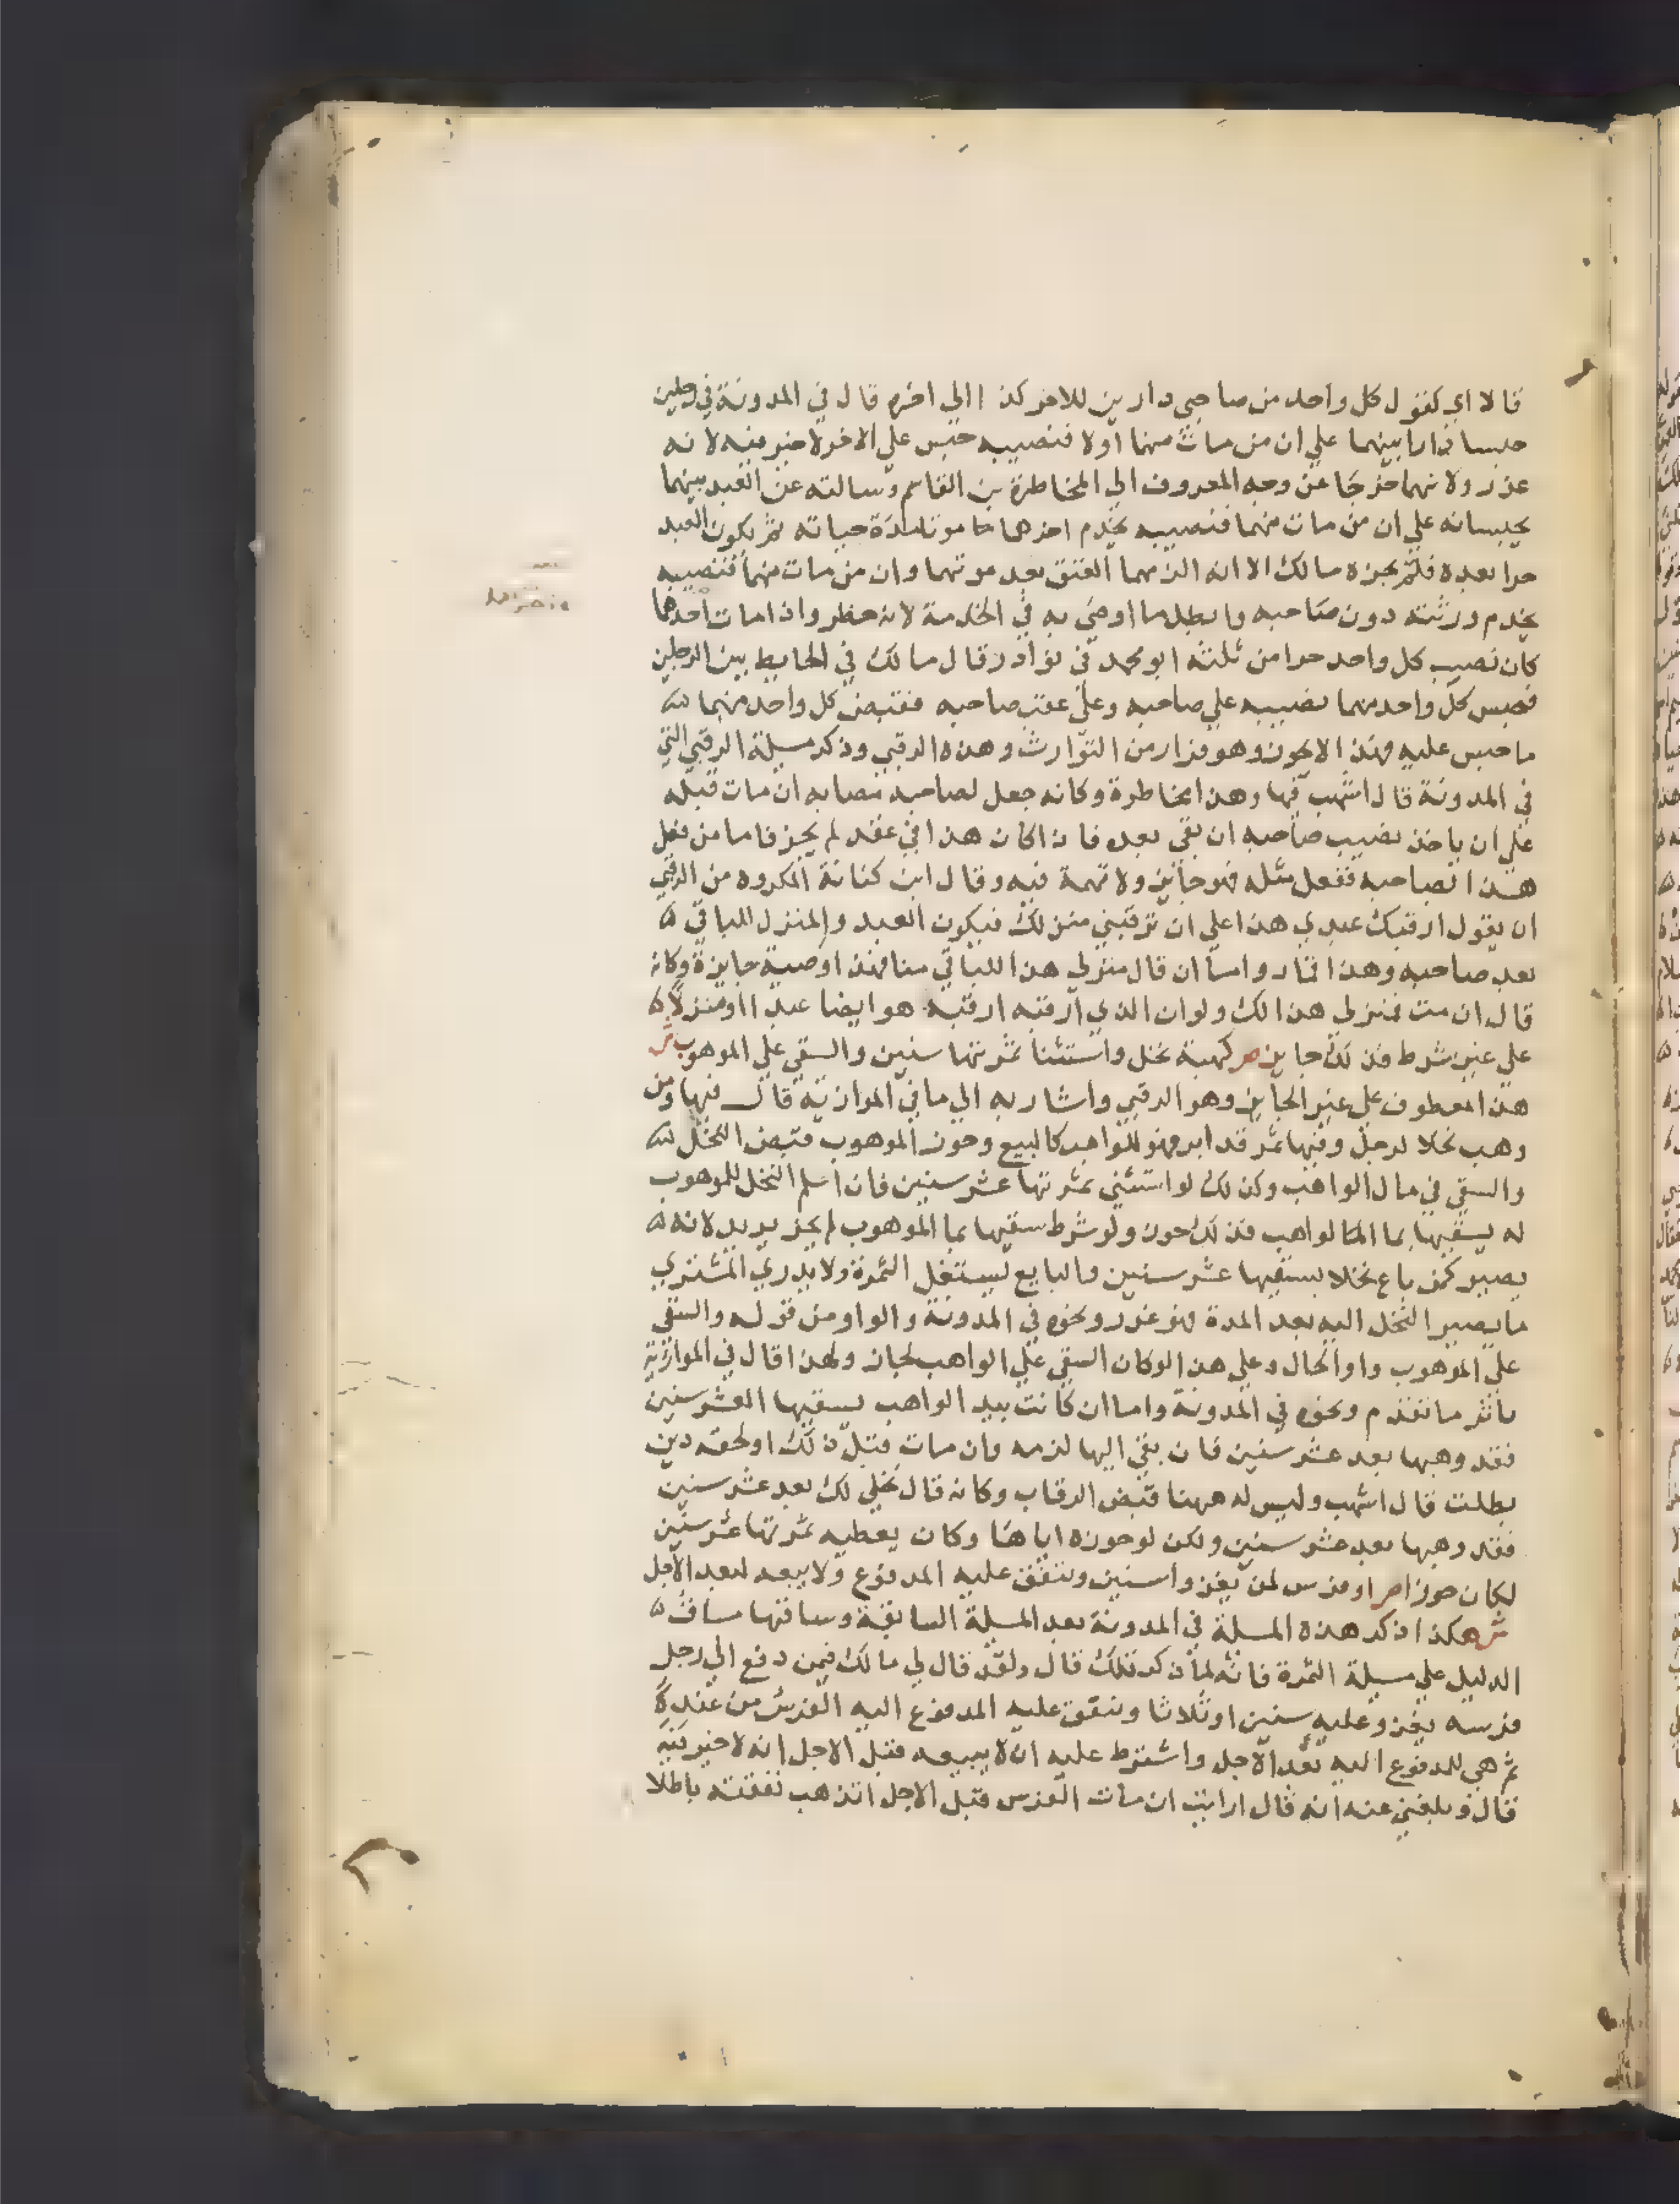 قالا اي كقول كل واحد من صاحبي دارين للاخر كذا الي اخره قال في المدونة في رجلين
حبسا دارا بينهما علي ان من مات منهما اولا فنصيبه حبس علي الاخر لا خير فيه لانه
غرر ولانهما خرجا عن وجه المعروف الي المخاطرة بن القاسم وسالته عن العبد بينهما
يحبسانه علي ان من مات منهما فنصيبه يخدم اخرهما موتا مدة حياته ثم يكون العبد
حرا بعده فلم يجزه مالك الا انه الزمهما العتق بعد موتهما وان من مات منهما فنصيبه
يخدم ورثته دون صاحبه وابطل ما اوصي به في الخدمة لانه خطر واذا مات احدهما
كان نصيب كل واحد حرا من ثلثه ابو محمد في نوادره قال مالك في الحايط بين الرجلين
فحبس كل واحد منهما نصيبه علي صاحبه وعلي عقب صاحبه فقبض كل واحد منهما
ما حبس عليه فهذا لا يجوز وهو فرار من التوارث وهذه الرقبي وذكر مسيلة الرقبي التي
في المدونة قال اشهب فيها وهذا مخاطرة وكانه جعل لصاحبه نصابه ان مات قبله
علي ان ياخذ نصيب صاحبه ان بقي بعده فان كان هذا في عقد لم يجز فاما من فعل
هذا لصاحبه ففعل مثله فهو جائز ولا تهمة فيه وقال ابن كنانة المكروه من الرقبي
ان يقول ارقبك عبدي هذا علي ان ترقبني منزلك فيكون العبد والمنزل للباقي
بعد صاحبه وهذا قمار واما ان قال منزلي هذا للباقي منا فهذا وصية جايزة وكانه
قال ان مت فمنزلي هذا لك ولو ان الذي ارقبه ارقبه هو ايضا عبدا او منزلا
علي غير شرط فذلك جايز ص كهبة نخل واستثنا ثمرتها سنين والسقي علي الموهوب ش
هذا معطوف علي غير الجايز وهو الرقبي واشار به الي ما في الموازية قال فيها ومن
وهب نخلا لرجل وفيها ثمر قد ابر فهو للواهب كالبيع وحوز الموهوب قبض النخل
والسقي في مال الواهب وكذلك لو استثني ثمرتها عشر سنين فان اسلم النخل للموهوب
له يسقيها بما الواهب فذلك حوز ولو شرط سقيها بما الموهوب لم يجز يريد لانه
يصير كمن باع نخلا يسقيها عشر سنين والبايع يستغل الثمرة ولا يدري المشتري
ما يصير النخل اليه بعد المدة فهو غرر ونحوه في المدونة والواو من قوله والسقي
علي الموهوب واو الحال وعلي هذا لو كان السقي علي الواهب لجاز ولهذا قال في الموازية
باثر ما تقدم ونحوه في المدونة واما ان كانت بيد الواهب يسقيها العشر سنين
فقد وهبها بعد عشر سنين فان بقي اليها لزمه وان مات قبل ذلك او لحقه دين
بطلت قال اشهب وليس له ههنا قبض الرقاب وكانه قال نخلي لك بعد عشر سنين
فقد وهبها بعد عشر سنين ولكن لو حوزه اياها وكان يعطيه ثمرتها عشر سنين
لكان حوزا ص او فرس لمن يغزوا سنين وينفق عليه المدفوع ولا يبيعه لبعد الاجل
ش هكذا ذكر هذه المسلة في المدونة بعد المسلة السابقة وساقتها مساق
الدليل علي مسيلة الثمرة فانه لما ذكر تلك قال ولقد قال لي مالك فيمن دفع الي رجل
فرسه يغزو عليه سنين او ثلاثا وينفق عليه المدفوع اليه الفرس من عنده
ثم هي للمدفوع اليه بعد الاجل واشترط عليه ان لا يبيعه قبل الاجل انه لا خير فيه
قال وبلغني عنه انه قال ارايت ان مات الفرس قبل الاجل اتذهب نفقته باطلا